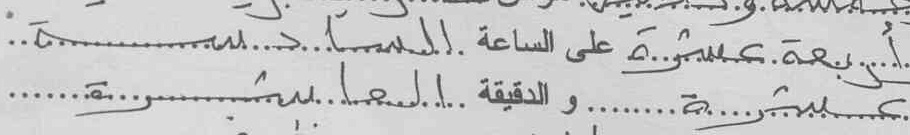 أربعة عشرة على الساعة السادسة
عشرة و الدقيقة العاشرة